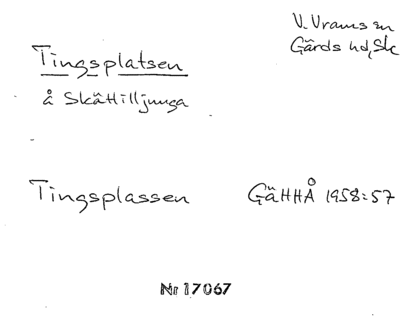 V. Vrams sn
Gärds hd, Sk
Tingsplatsen
å Skättilljunga
Tingsplassen GäHHÅ 1958:57
Nr 17067